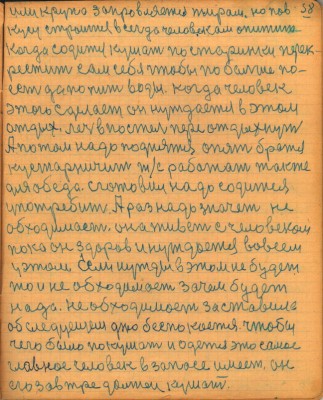 58
или круто заправляется жирам, но пов
кусу строится все до человекам аппетита
Когда содится кушат по старинки перек
рестит сам себя чтобы по болше по-
ест да попит воды. Когда человек
этого зделает он нуждается в этом
отдых, лех в постел пере отдыхнут
А потом надо поднятся опят братся
кустарничит и/с работат так же
для обеда. сготовил надо содится
употребит. А раз надо значет не
обходимаст, она живет с человеком
пока он здоров и нуждается во всем
у этом. Если нужды в этом не будет
то и не обходимаст зачем будет
надо. Не обходимост заставила
об следуещем дню беспокоется, чтобы
чего было покушат и одется это самое
главное человек в запосе имеет, он
его завтре должен кушат.